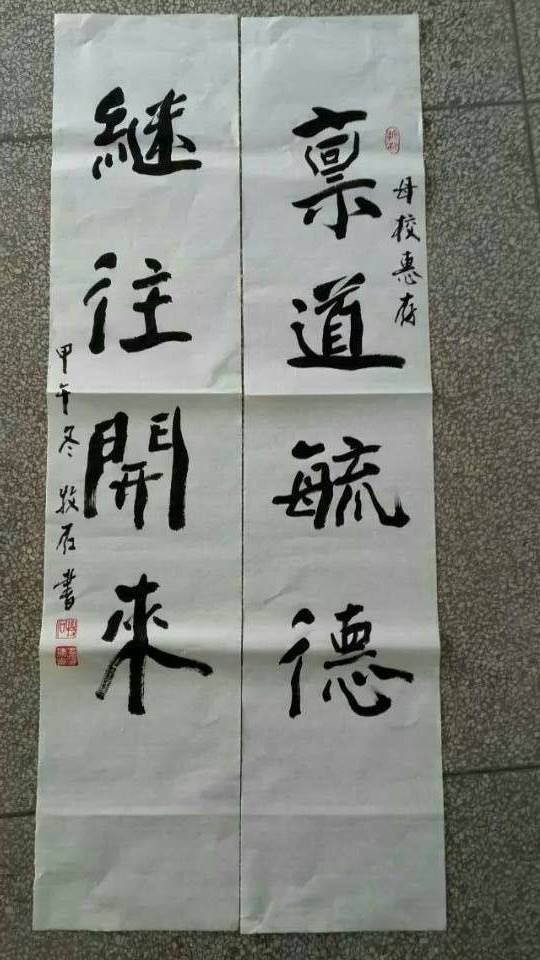 母校惠存
禀道毓德
继往開來
甲午冬 牧石書